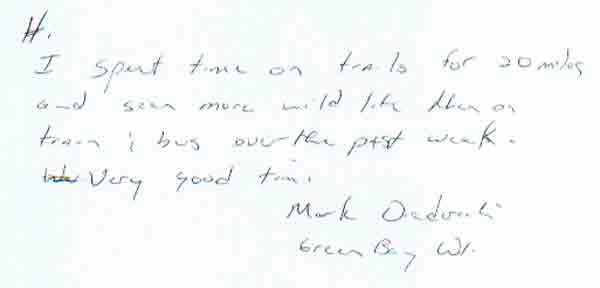 Hi.
I spent time on trails for 20 miles
and seen more wild life then on
train & bus over the past weak.
Very good time.
Mark
Green Bay WI.